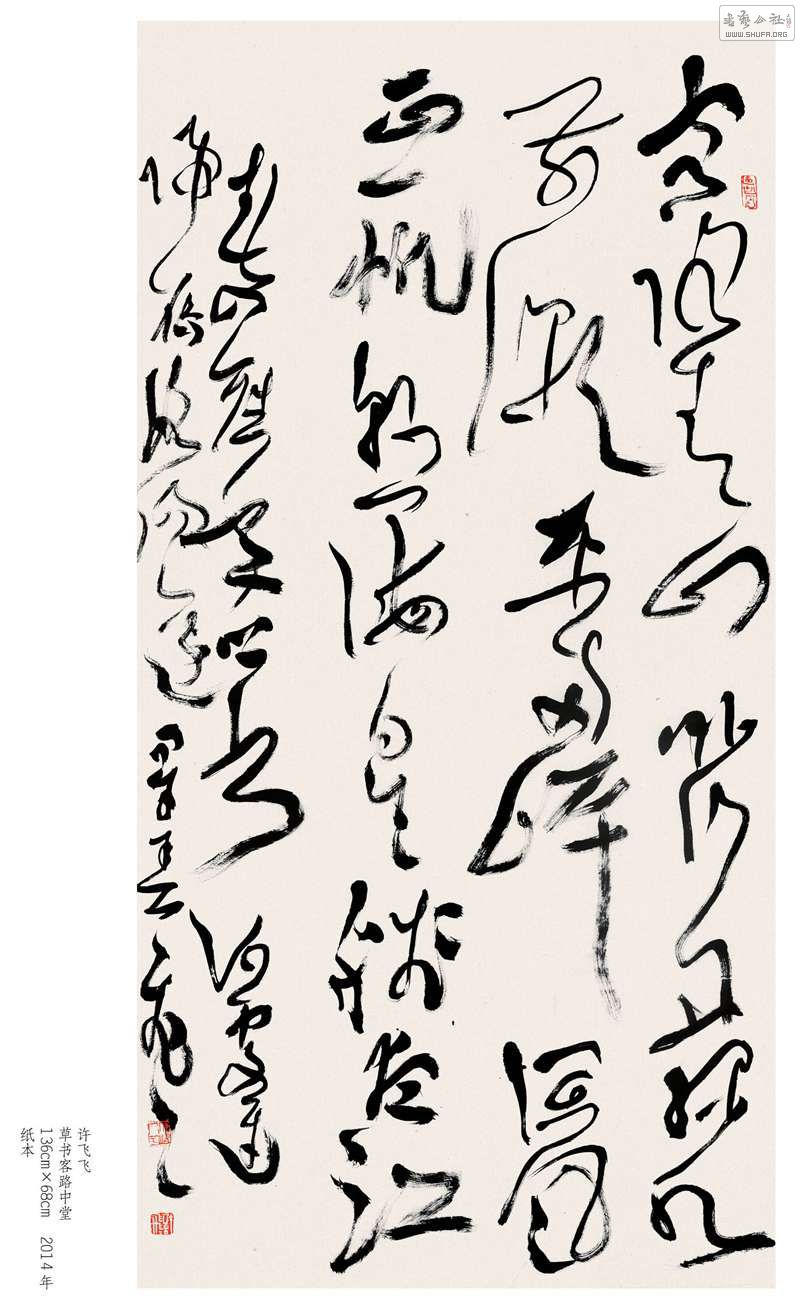 客路青山外行舟绿水
前潮平两岸阔風
正一帆懸海日生残夜江
春入舊年鄉書何處達
歸雁洛陽邊
许飞飞
草书客路中堂
136cm×68cm 2014年
纸本
书艺公社
WWW.SHUFA.ORG